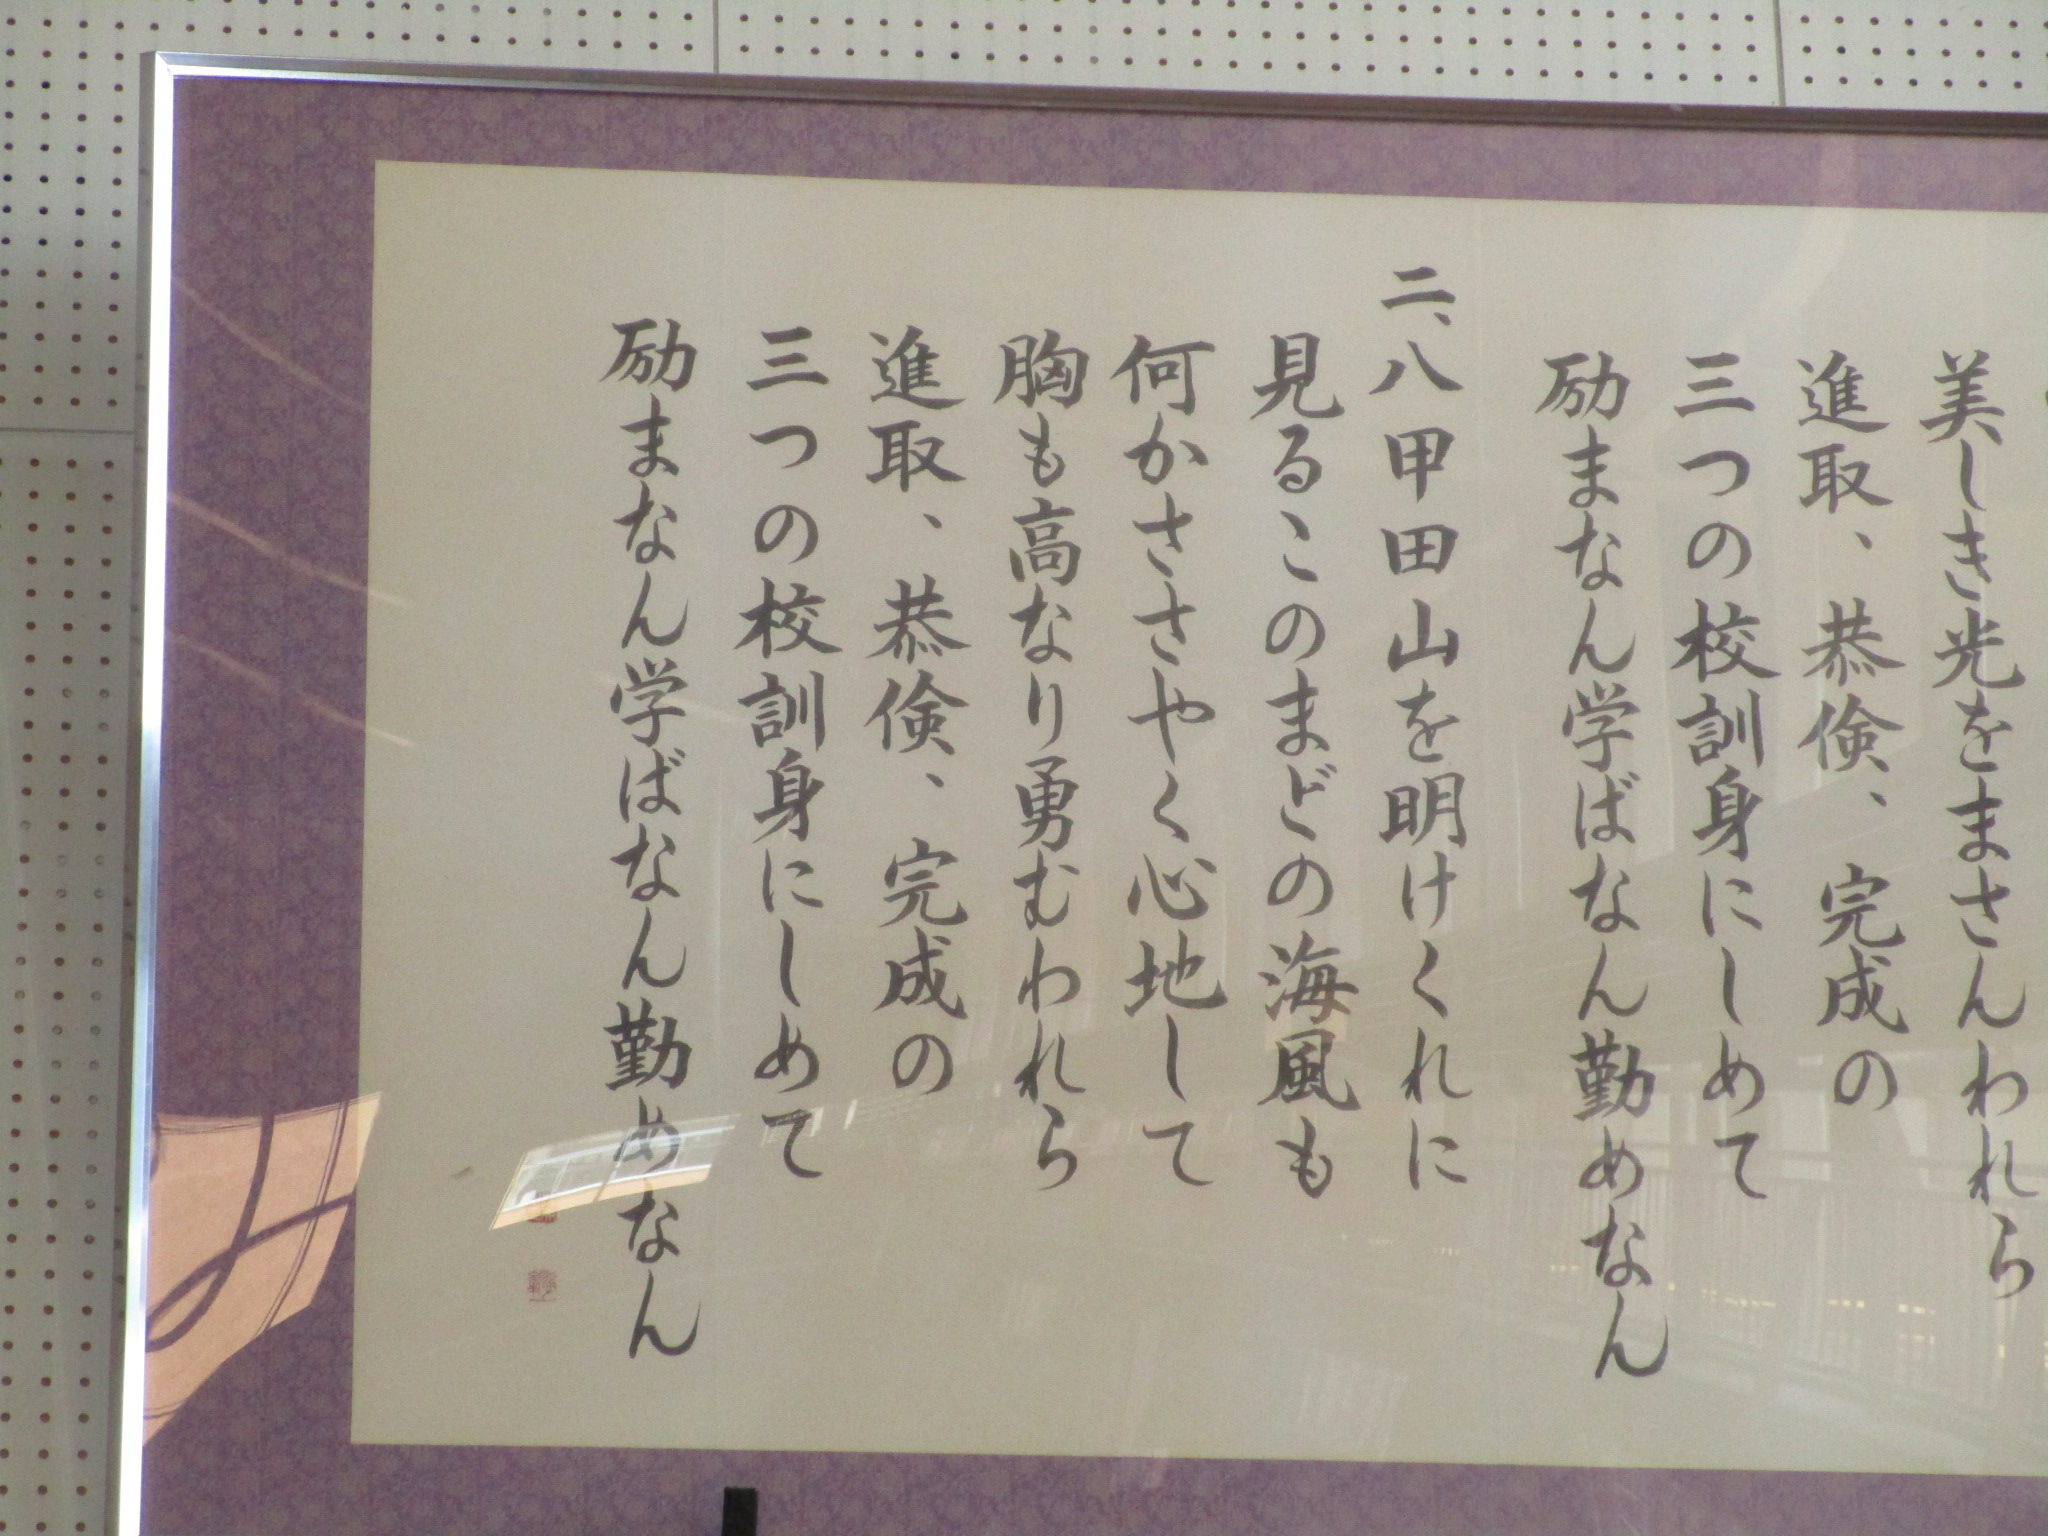 美しき光をまさんわれら
進取、恭倹、完成の
三つの校訓身にしめて
励まなん学ばなん勤めなん
二、八甲田山を明けくれに
見るこのまどの海風も
何かささやく心地して
胸も高なり勇むわれら
進取、恭倹、完成の
三つの校訓身にしめて
励まなん学ばなん勤めなん